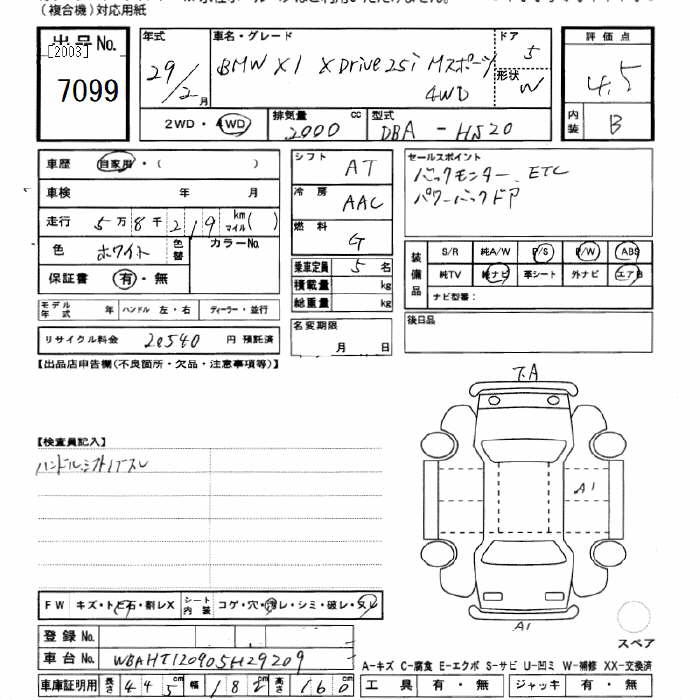 (複合機)対応用紙
出品No.
[2003]
7099
年式
29/2月
車名・グレード
BMW X1 X Drive 25i Mスポーツ
4WD
ドア
5
形状
W
評価点
4.5
内装
B
2WD・4WD
排気量
2000 cc
型式
DBA - HS20
車歴 自家用・( )
車検 年 月
走行 5万8千219 km マイル( )
色 ホワイト 色替 カラーNo.
保証書 有・無
モデル年式 年 ハンドル 左・右 ディーラー・並行
リサイクル料金 20540 円 預託済
シフト AT
冷房 AAC
燃料 G
乗車定員 5 名
積載量 kg
総重量 kg
名変期限
月 日
セールスポイント
バックモニター ETC
パワーバックドア
装備品
S/R 純A/W P/S P/W ABS
純TV 純ナビ 革シート 外ナビ エアB
ナビ型番:
後日品
【出品店申告欄(不良箇所・欠品・注意事項等)】
【検査員記入】
ハンドルシフトノブスレ
下A
A1
A1
スペア
FW キズ・トビ石・割レX シート内装 コゲ・穴・汚レ・シミ・破レ・スレ
登録No.
車台No. WBAHT120905H29209
車庫証明用 長さ 445 cm 幅 182 cm 高さ 160 cm
A-キズ C-腐食 E-エクボ S-サビ U-凹ミ W-補修 XX-交換済
工具 有・無 ジャッキ 有・無